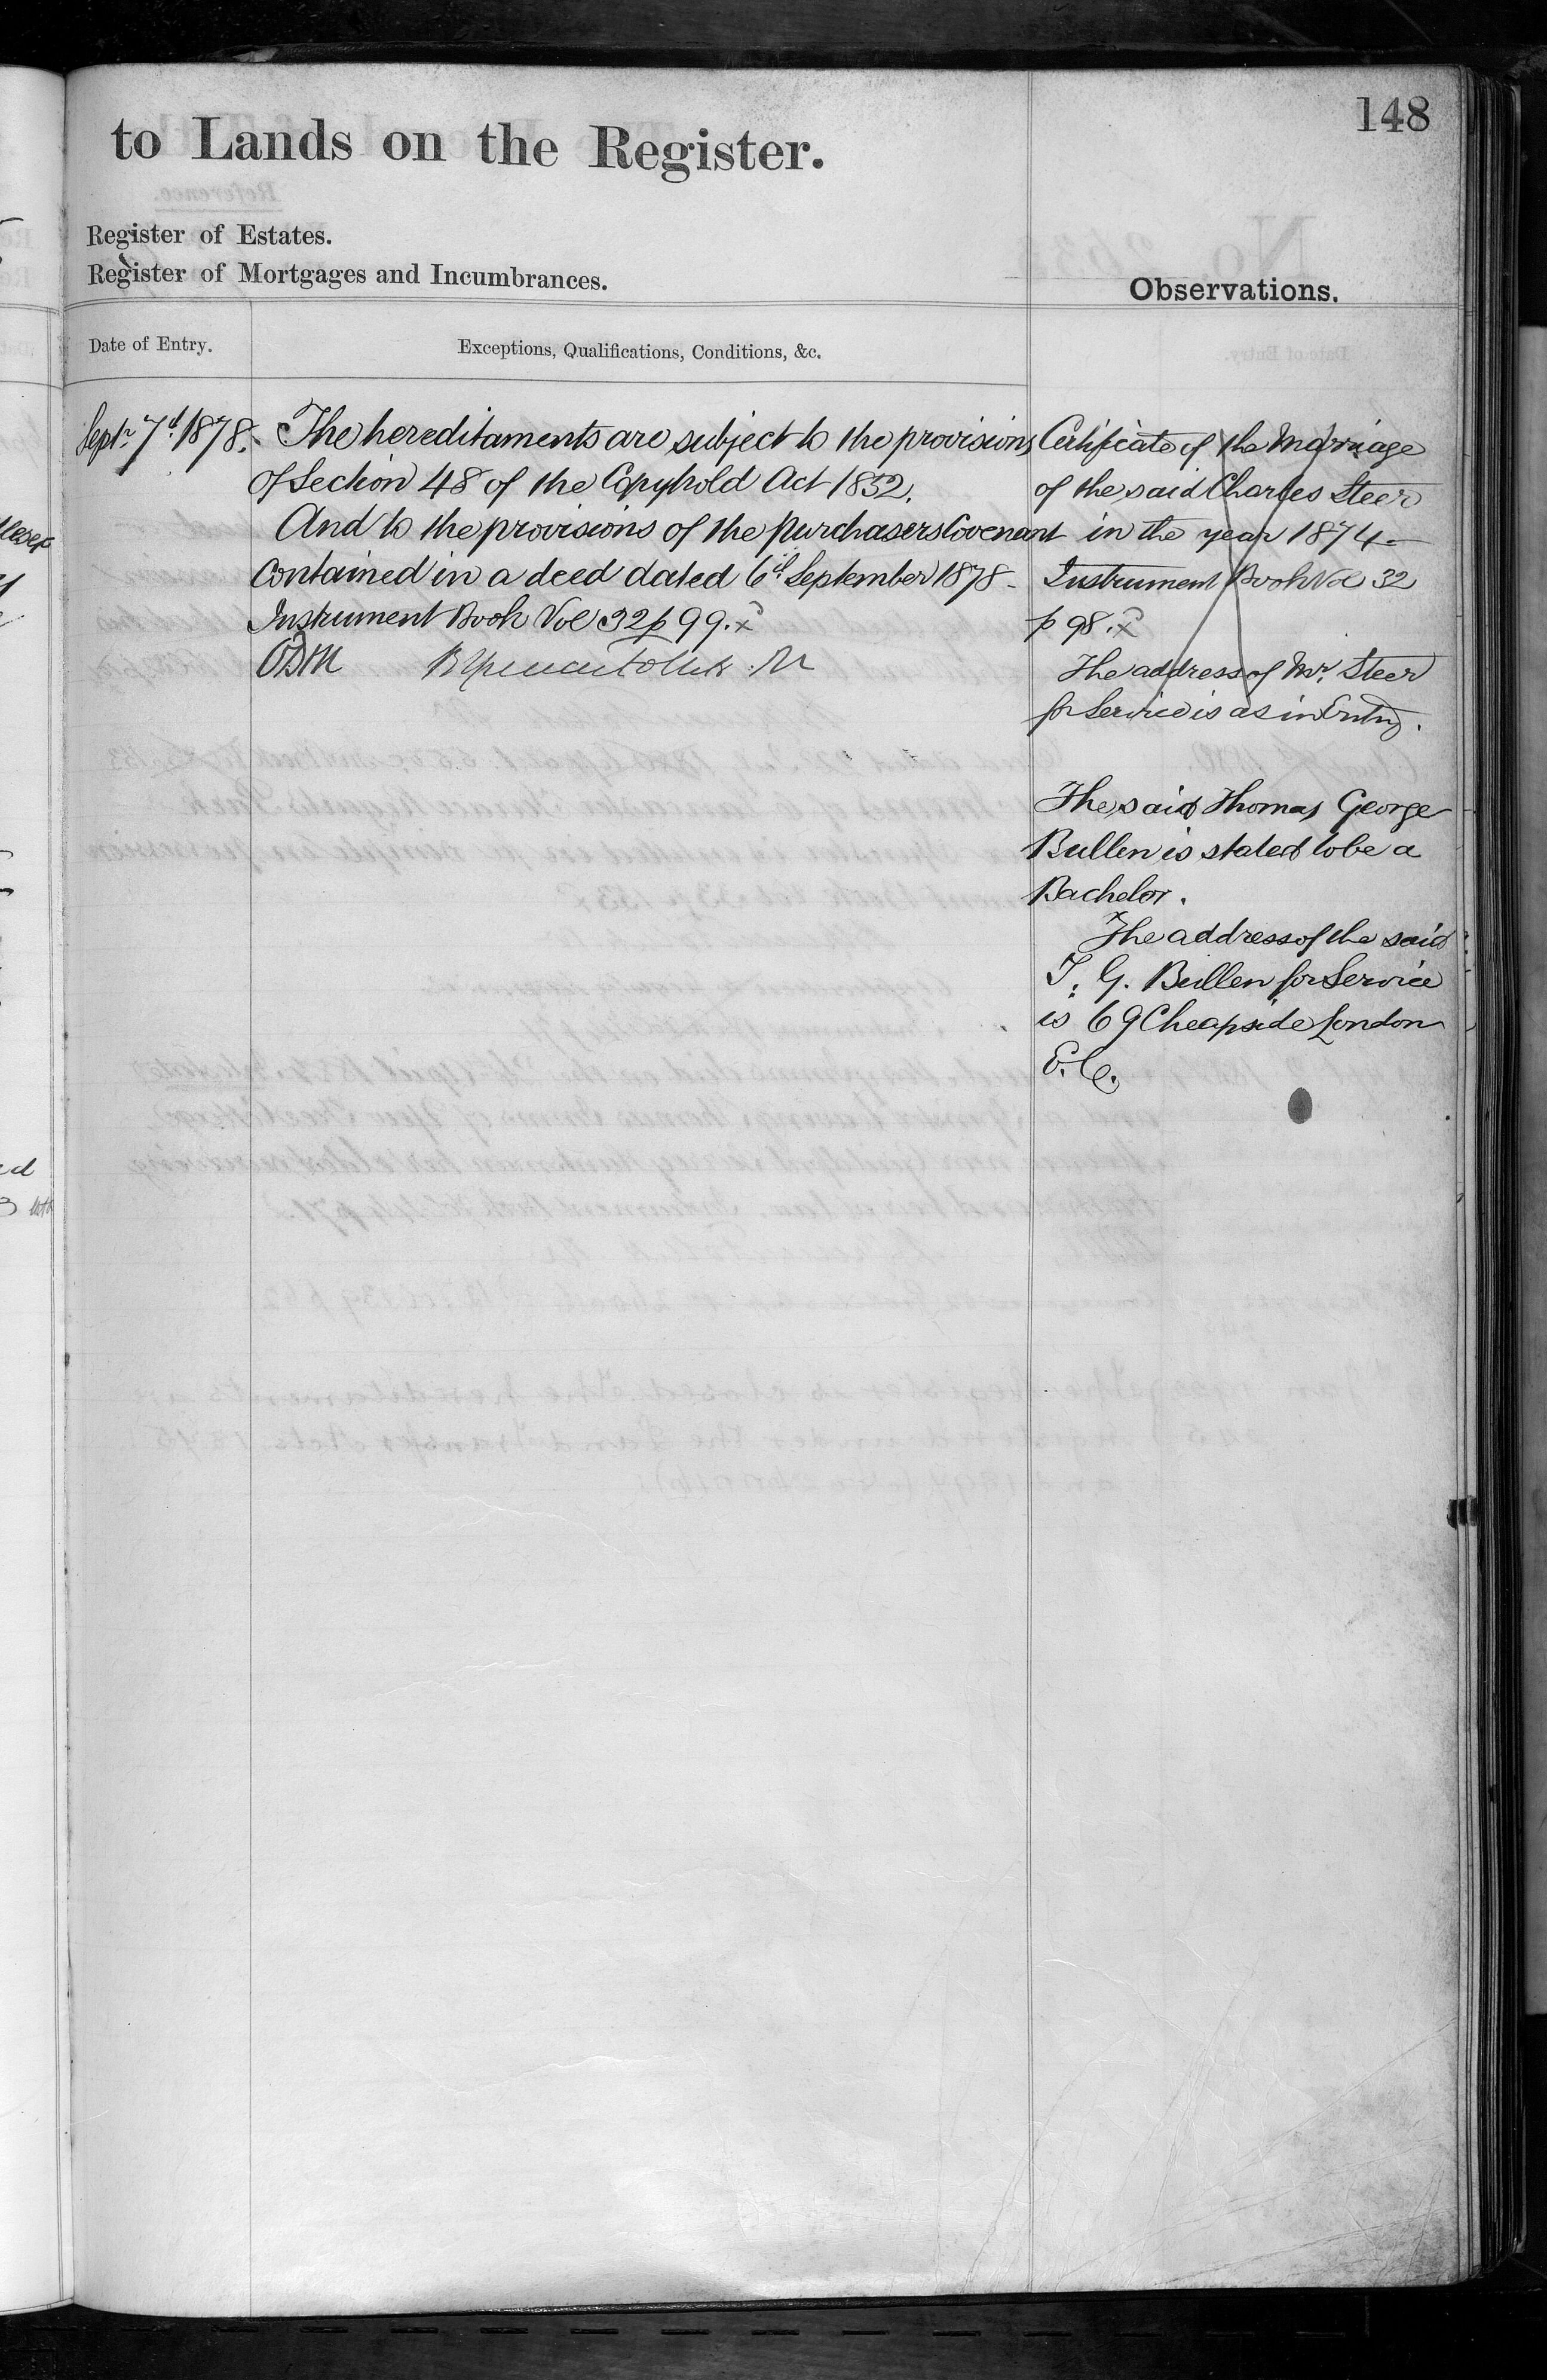 148
to Lands on the Register.
Register of Estates.
Register of Mortgages and Incumbrances.
Observations.
Date of Entry.
Exceptions, Qualifications, Conditions, &c.
Septr. 7th 1878.
The hereditaments are subject to the provisions
of Section 48 of the Copyhold Act 1852.
And to the provisions of the purchasers Covenant
contained in a deed dated 6th September 1878 -
Instrument Book Vol 32 p 99. x
Certificate of the Marriage
of the said Charles Steer
in the year 1874 -
Instrument Book Vol 32
p 98. x
The address of Mr. Steer
for Service is as in Entry.
The said Thomas George
Bullen is stated to be a
Bachelor.
The address of the said
T. G. Bullen for Service
is 69 Cheapside London
E.C.